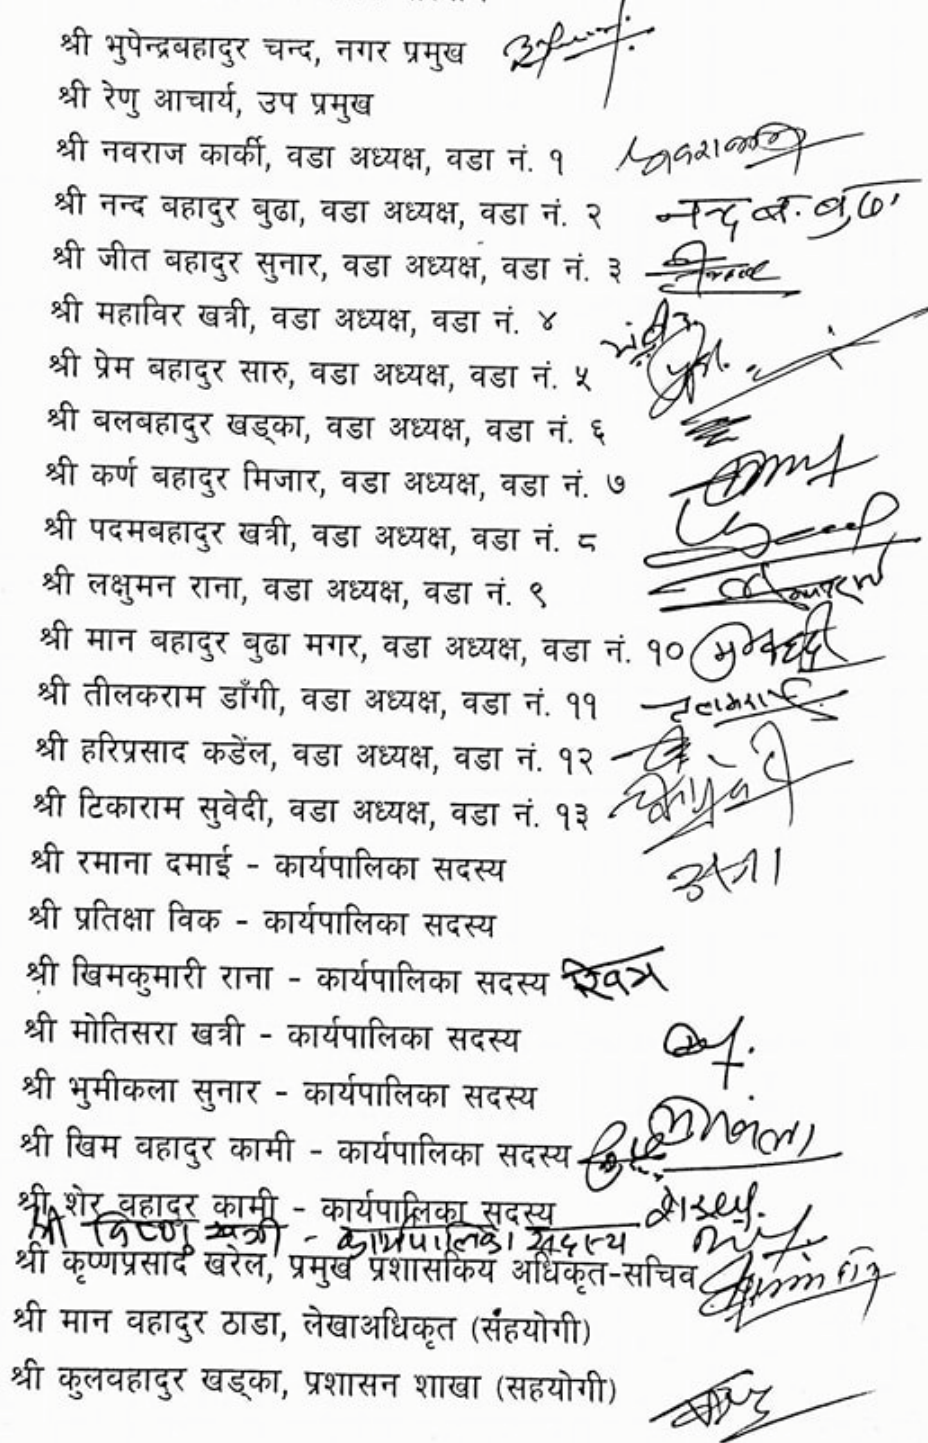 श्री भुपेन्द्रबहादुर चन्द, नगर प्रमुख
श्री रेणु आचार्य, उप प्रमुख
श्री नवराज कार्की, वडा अध्यक्ष, वडा नं. १
श्री नन्द बहादुर बुढा, वडा अध्यक्ष, वडा नं. २ नन्द ब. बुढा
श्री जीत बहादुर सुनार, वडा अध्यक्ष, वडा नं. ३
श्री महाविर खत्री, वडा अध्यक्ष, वडा नं. ४
श्री प्रेम बहादुर सारु, वडा अध्यक्ष, वडा नं. ५
श्री बलबहादुर खड्का, वडा अध्यक्ष, वडा नं. ६
श्री कर्ण बहादुर मिजार, वडा अध्यक्ष, वडा नं. ७
श्री पदमबहादुर खत्री, वडा अध्यक्ष, वडा नं. ८
श्री लक्षुमन राना, वडा अध्यक्ष, वडा नं. ९
श्री मान बहादुर बुढा मगर, वडा अध्यक्ष, वडा नं. १०
श्री तीलकराम डाँगी, वडा अध्यक्ष, वडा नं. ११
श्री हरिप्रसाद कडेंल, वडा अध्यक्ष, वडा नं. १२
श्री टिकाराम सुवेदी, वडा अध्यक्ष, वडा नं. १३
श्री रमाना दमाई - कार्यपालिका सदस्य
श्री प्रतिक्षा विक - कार्यपालिका सदस्य
श्री खिमकुमारी राना - कार्यपालिका सदस्य
श्री मोतिसरा खत्री - कार्यपालिका सदस्य
श्री भुमीकला सुनार - कार्यपालिका सदस्य
श्री खिम वहादुर कामी - कार्यपालिका सदस्य
श्री शेर वहादुर कामी - कार्यपालिका सदस्य
श्री विष्णु खत्री - कार्यपालिका सदस्य
श्री कृष्णप्रसाद खरेल, प्रमुख प्रशासकिय अधिकृत-सचिव
श्री मान वहादुर ठाडा, लेखाअधिकृत (संहयोगी)
श्री कुलवहादुर खड्का, प्रशासन शाखा (सहयोगी)